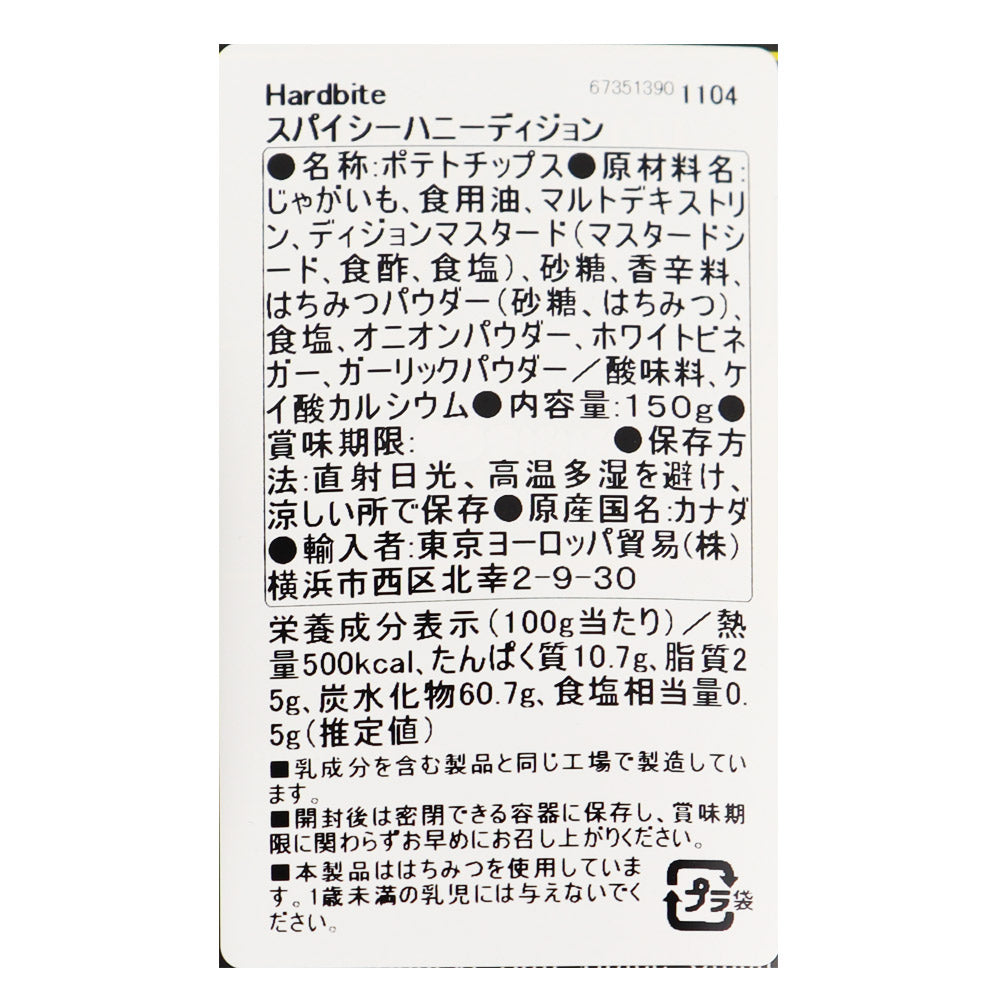 Hardbite 67351390 1104
スパイシーハニーディジョン
●名称:ポテトチップス●原材料名:
じゃがいも、食用油、マルトデキストリ
ン、ディジョンマスタード(マスタードシ
ード、食酢、食塩)、砂糖、香辛料、
はちみつパウダー(砂糖、はちみつ)、
食塩、オニオンパウダー、ホワイトビネ
ガー、ガーリックパウダー／酸味料、ケ
イ酸カルシウム●内容量:150g●
賞味期限: ●保存方
法:直射日光、高温多湿を避け、
涼しい所で保存●原産国名:カナダ
●輸入者:東京ヨーロッパ貿易(株)
横浜市西区北幸2-9-30
栄養成分表示(100g当たり)／熱
量500kcal、たんぱく質10.7g、脂質2
5g、炭水化物60.7g、食塩相当量0.
5g(推定値)
■乳成分を含む製品と同じ工場で製造してい
ます。
■開封後は密閉できる容器に保存し、賞味期
限に関わらずお早めにお召し上がりください。
■本製品ははちみつを使用していま
す。1歳未満の乳児には与えないでく
ださい。
プラ 袋